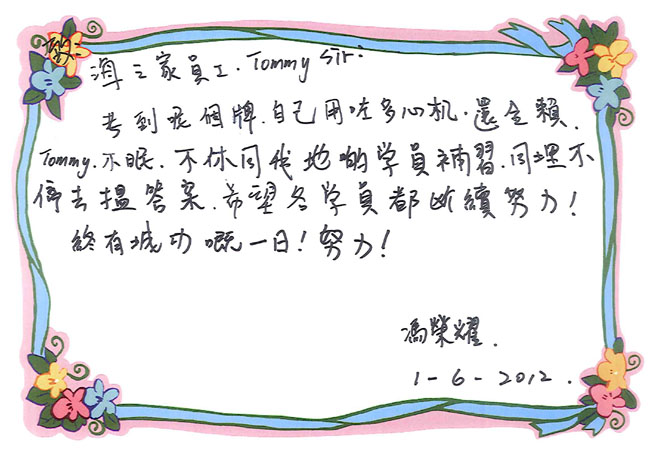 致: 海之家員工. Tommy Sir:
考到呢個牌.自己用咗多心机.還全賴.
Tommy.不眠.不休同我地啲学員補習.同埋不
停去搵答案.希望各学員都断續努力!
終有成功嘅一日!努力!
馮榮耀.
1-6-2012.